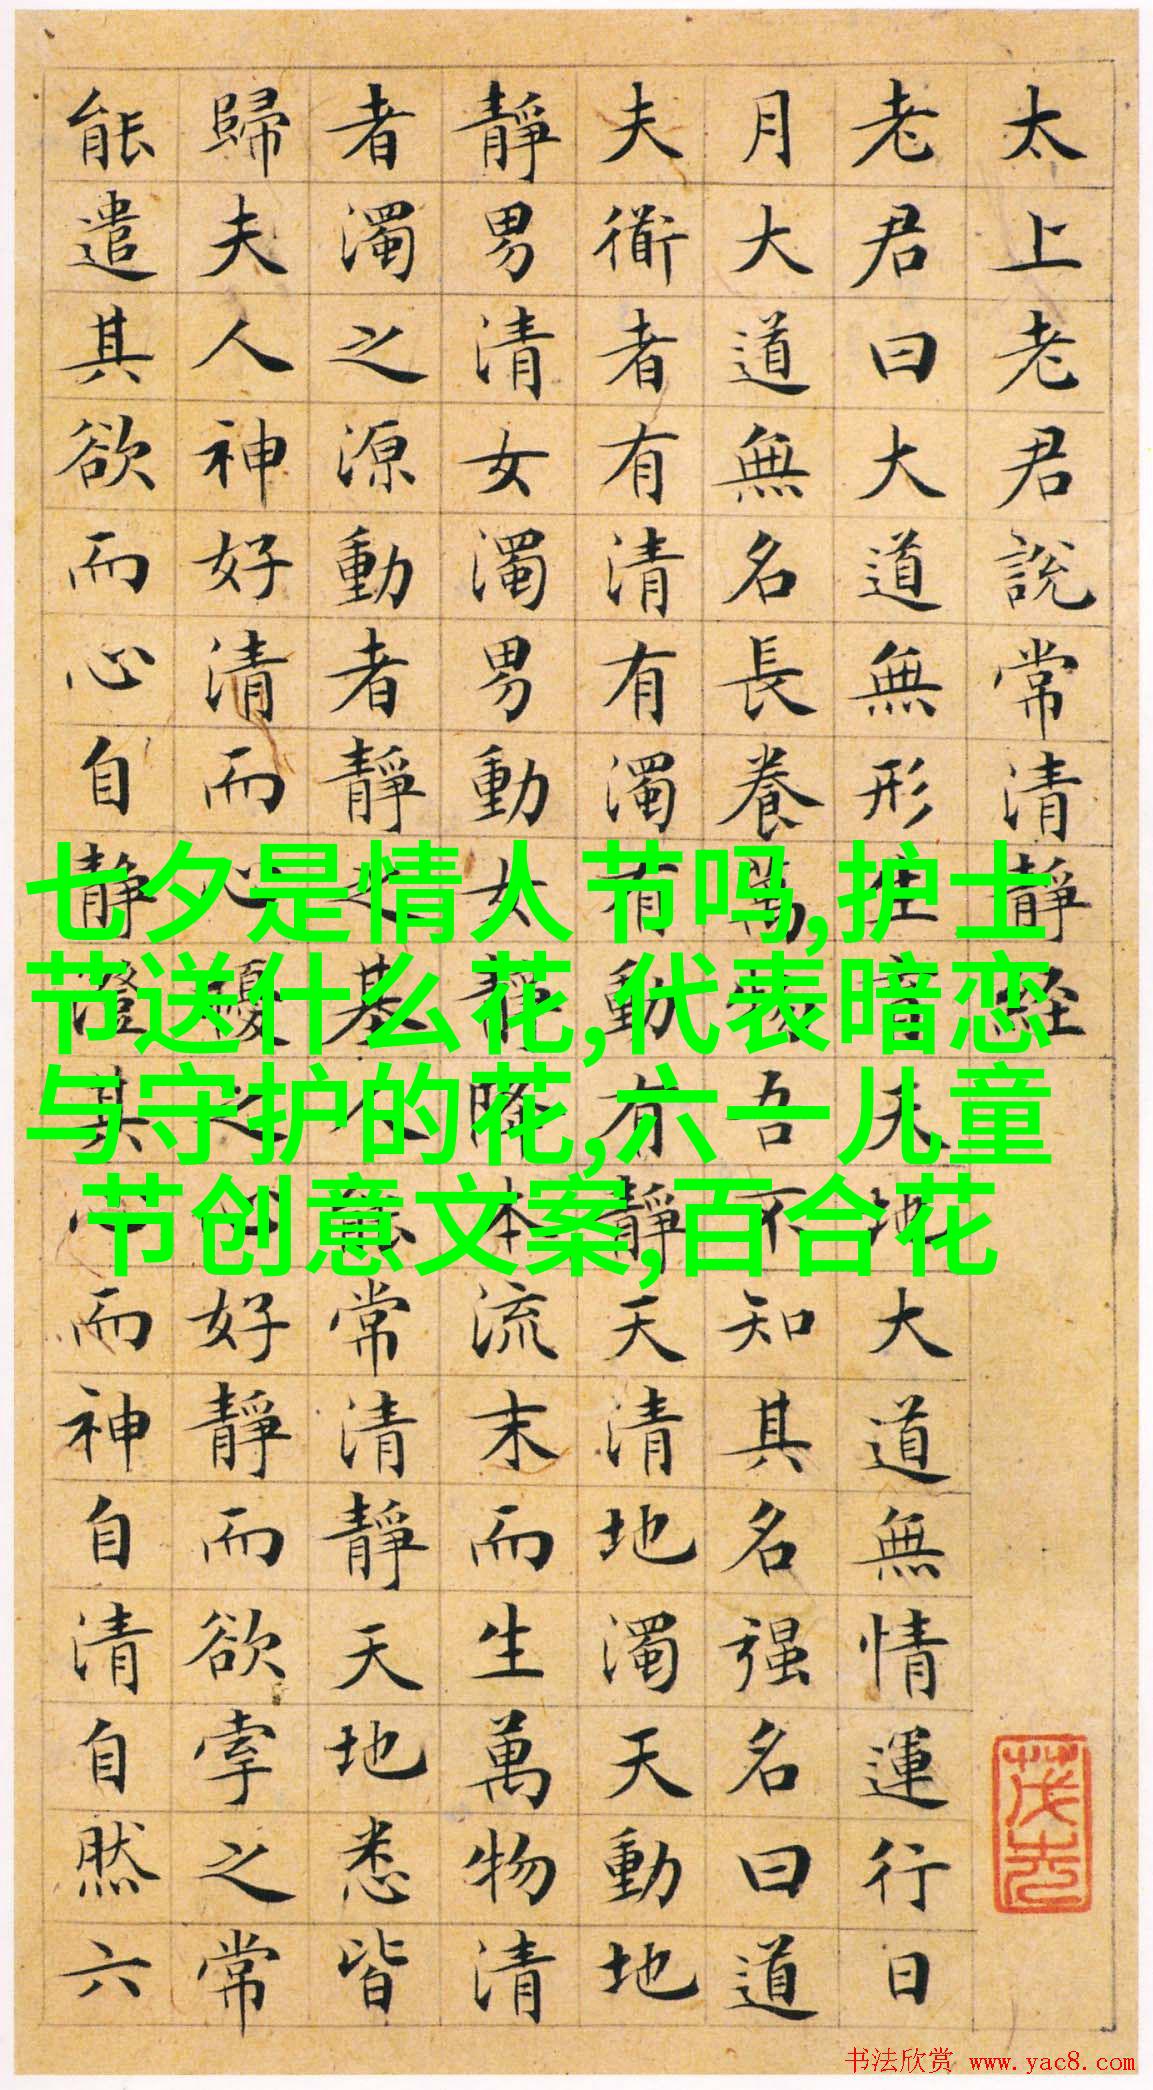 太上老君說常清靜經
老君曰大道無形生育天地大道無情運行日
月大道無名長養萬物吾不知其名强名曰道
夫衜者有清有濁有動有靜天清地濁天動地
靜男清女濁男動女靜降本流末而生萬物清
者濁之源動者靜之基人能常清靜天地悉皆
歸夫人神好清而心擾之心好靜而欲牽之常
能遣其欲而心自靜澄其心而神自清自然六
七夕是情人节吗,护士
节送什么花,代表暗恋
与守护的花,六一儿童
节创意文案,百合花
书法欣赏 www.yac8.com